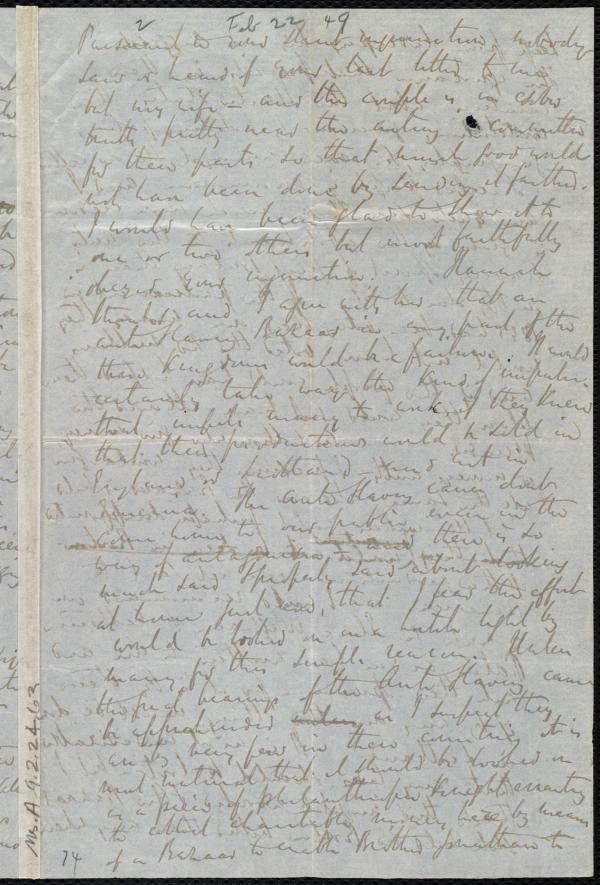 2 Feb 22 49
Pursuant to your injunction, nobody
saw or heard of your last letter to me
but my wife - and the couple is in sober
truth pretty near the anti committee
for these parts so that much good would
not have been done by sending it farther.
I would have been glad to show it to
one or two others but most faithfully
obeyed your injunction. Hannah
thinks, and I agree with her that an
Anti Slavery Bazaar in any part of the
three Kingdoms would be a failure. It would
certainly take away the kind of impulse
that impels many to work if they knew
that their productions would be sold in
England or Scotland - and not in
America. The Anti Slavery cause don't
come home to our public even in the
way of antagonism - there is so
much said & properly said about looking
at home just now, that I fear the effort
would be looked on in a hostile light by
many for this simple reason. Unless
the great bearings of the Anti Slavery cause
be apprehended as I suspect they
are by very few in these countries, it is
most natural that it should be looked on
as a piece of philanthropic Knight errantry
to collect charitable money here by means
of a Bazaar to enable Brother Jonathan to
74
Ms. A. 9. 2. 24. 63